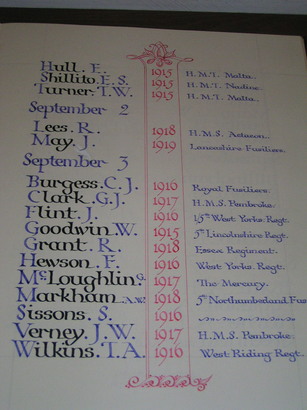 Hull. F. 1915 H.M.T. Malta.
Shillito. E.S. 1915 H.M.T. Nadine.
Turner. T.W. 1915 H.M.T. Malta.
September 2
Lees. R. 1918 H.M.S. Actaeon.
May. J. 1919 Lancashire Fusiliers.
September 3
Burgess. C.J. 1916 Royal Fusiliers.
Clark. G.J. 1917 H.M.S. Pembroke.
Flint. J. 1916 1/5th West Yorks Regt.
Goodwin. W. 1915 5th Lincolnshire Regt.
Grant. R. 1918 Essex Regiment.
Hewson. F. 1916 West Yorks. Regt.
McLoughlin. G. 1917 The Mercury.
Markham. A.W. 1918 5th Northumberland Fus
Sissons. S. 1916
Verney. J.W. 1917 H.M.S. Pembroke.
Wilkins. T.A. 1916 West Riding Regt.